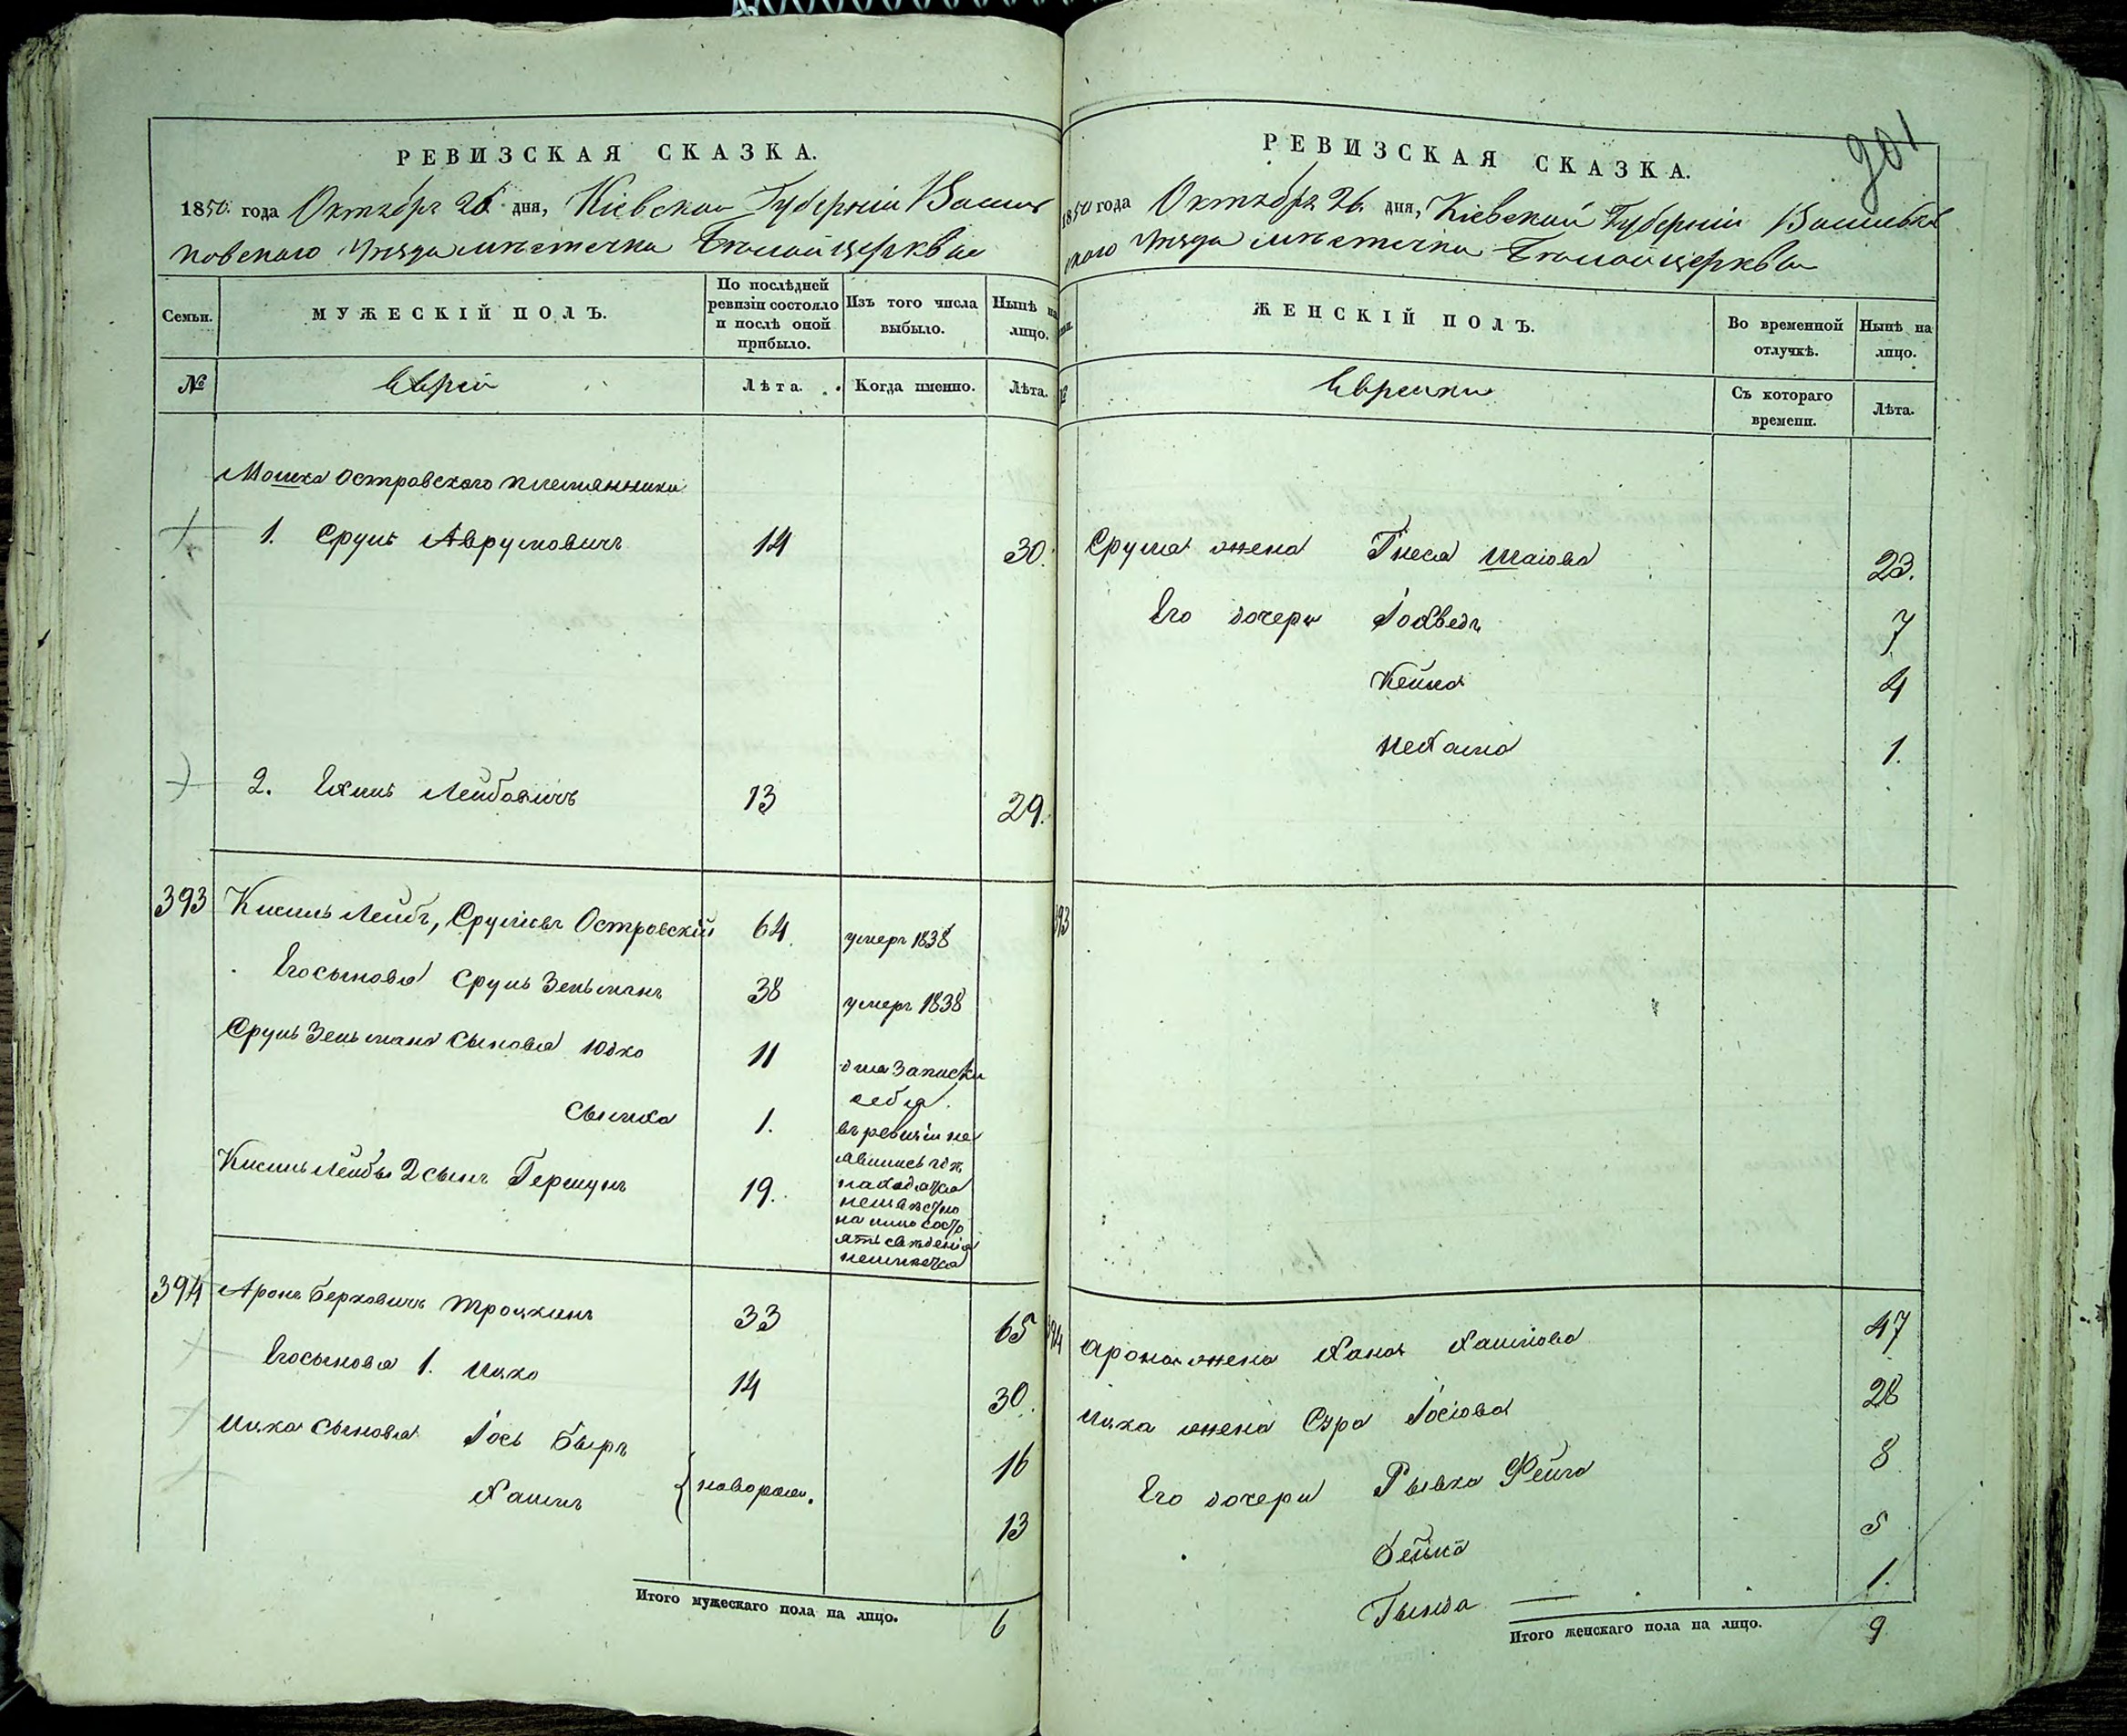 РЕВИЗСКАЯ СКАЗКА.
1850 года Октября 26 дня, Кіевской Губерніи Василь
ковского Уезда местечка Белойцерквы
Семьи.
МУЖЕСКІЙ ПОЛЪ.
По послѣдней
ревизіи состояло
и послѣ оной
прибыло.
Изъ того числа
выбыло.
Нынѣ на
лицо.
№
Еврей
Лѣта.
Когда именно.
Лѣта.
Мошка Островского племянники
1. Сруль Аврумовичъ 14 30.
2. Ехиль Лейбовичъ 13 29.
393 Кисиль Лейбъ, Срулiовъ Островскій 64. умеръ 1838
Его сыновья Сруль Зельманъ 38 умеръ 1838
Сруль Зельмана сыновья Юдко 11 для записки
себя
Сымха 1. въ ревизіи не
явились где
Кисиль Лейбы 2 сынъ Гершунъ 19. находятся
неизвестно
на лицо состо
ять сведенія
неимеется
394 Аронъ Берковичъ Троцкинъ 33 65
Его сыновья 1. Ицко 14 30.
Ицка сыновья Іось Беръ 16
Хаимъ { новорожд. 13
Итого мужескаго пола на лицо. 6
201
РЕВИЗСКАЯ СКАЗКА.
1850 года Октября 26. дня, Кіевской Губерніи Васильков
ского Уезда местечка Белойцерквы
ЖЕНСКІЙ ПОЛЪ.
Во временной
отлучкѣ.
Нынѣ на
лицо.
№
Еврейки
Съ котораго
времени.
Лѣта.
Сруля жена Гнеся Шаіова 23.
Его дочери Іохведъ 7
Кейла 4
Нехама 1.
393
394 Арона жена Хана Хаимова 47
Ицка жена Сура Іосіова 28
Его дочери Рывка Фейга 8
Бейла 5
Гында 1.
Итого женскаго пола на лицо. 9